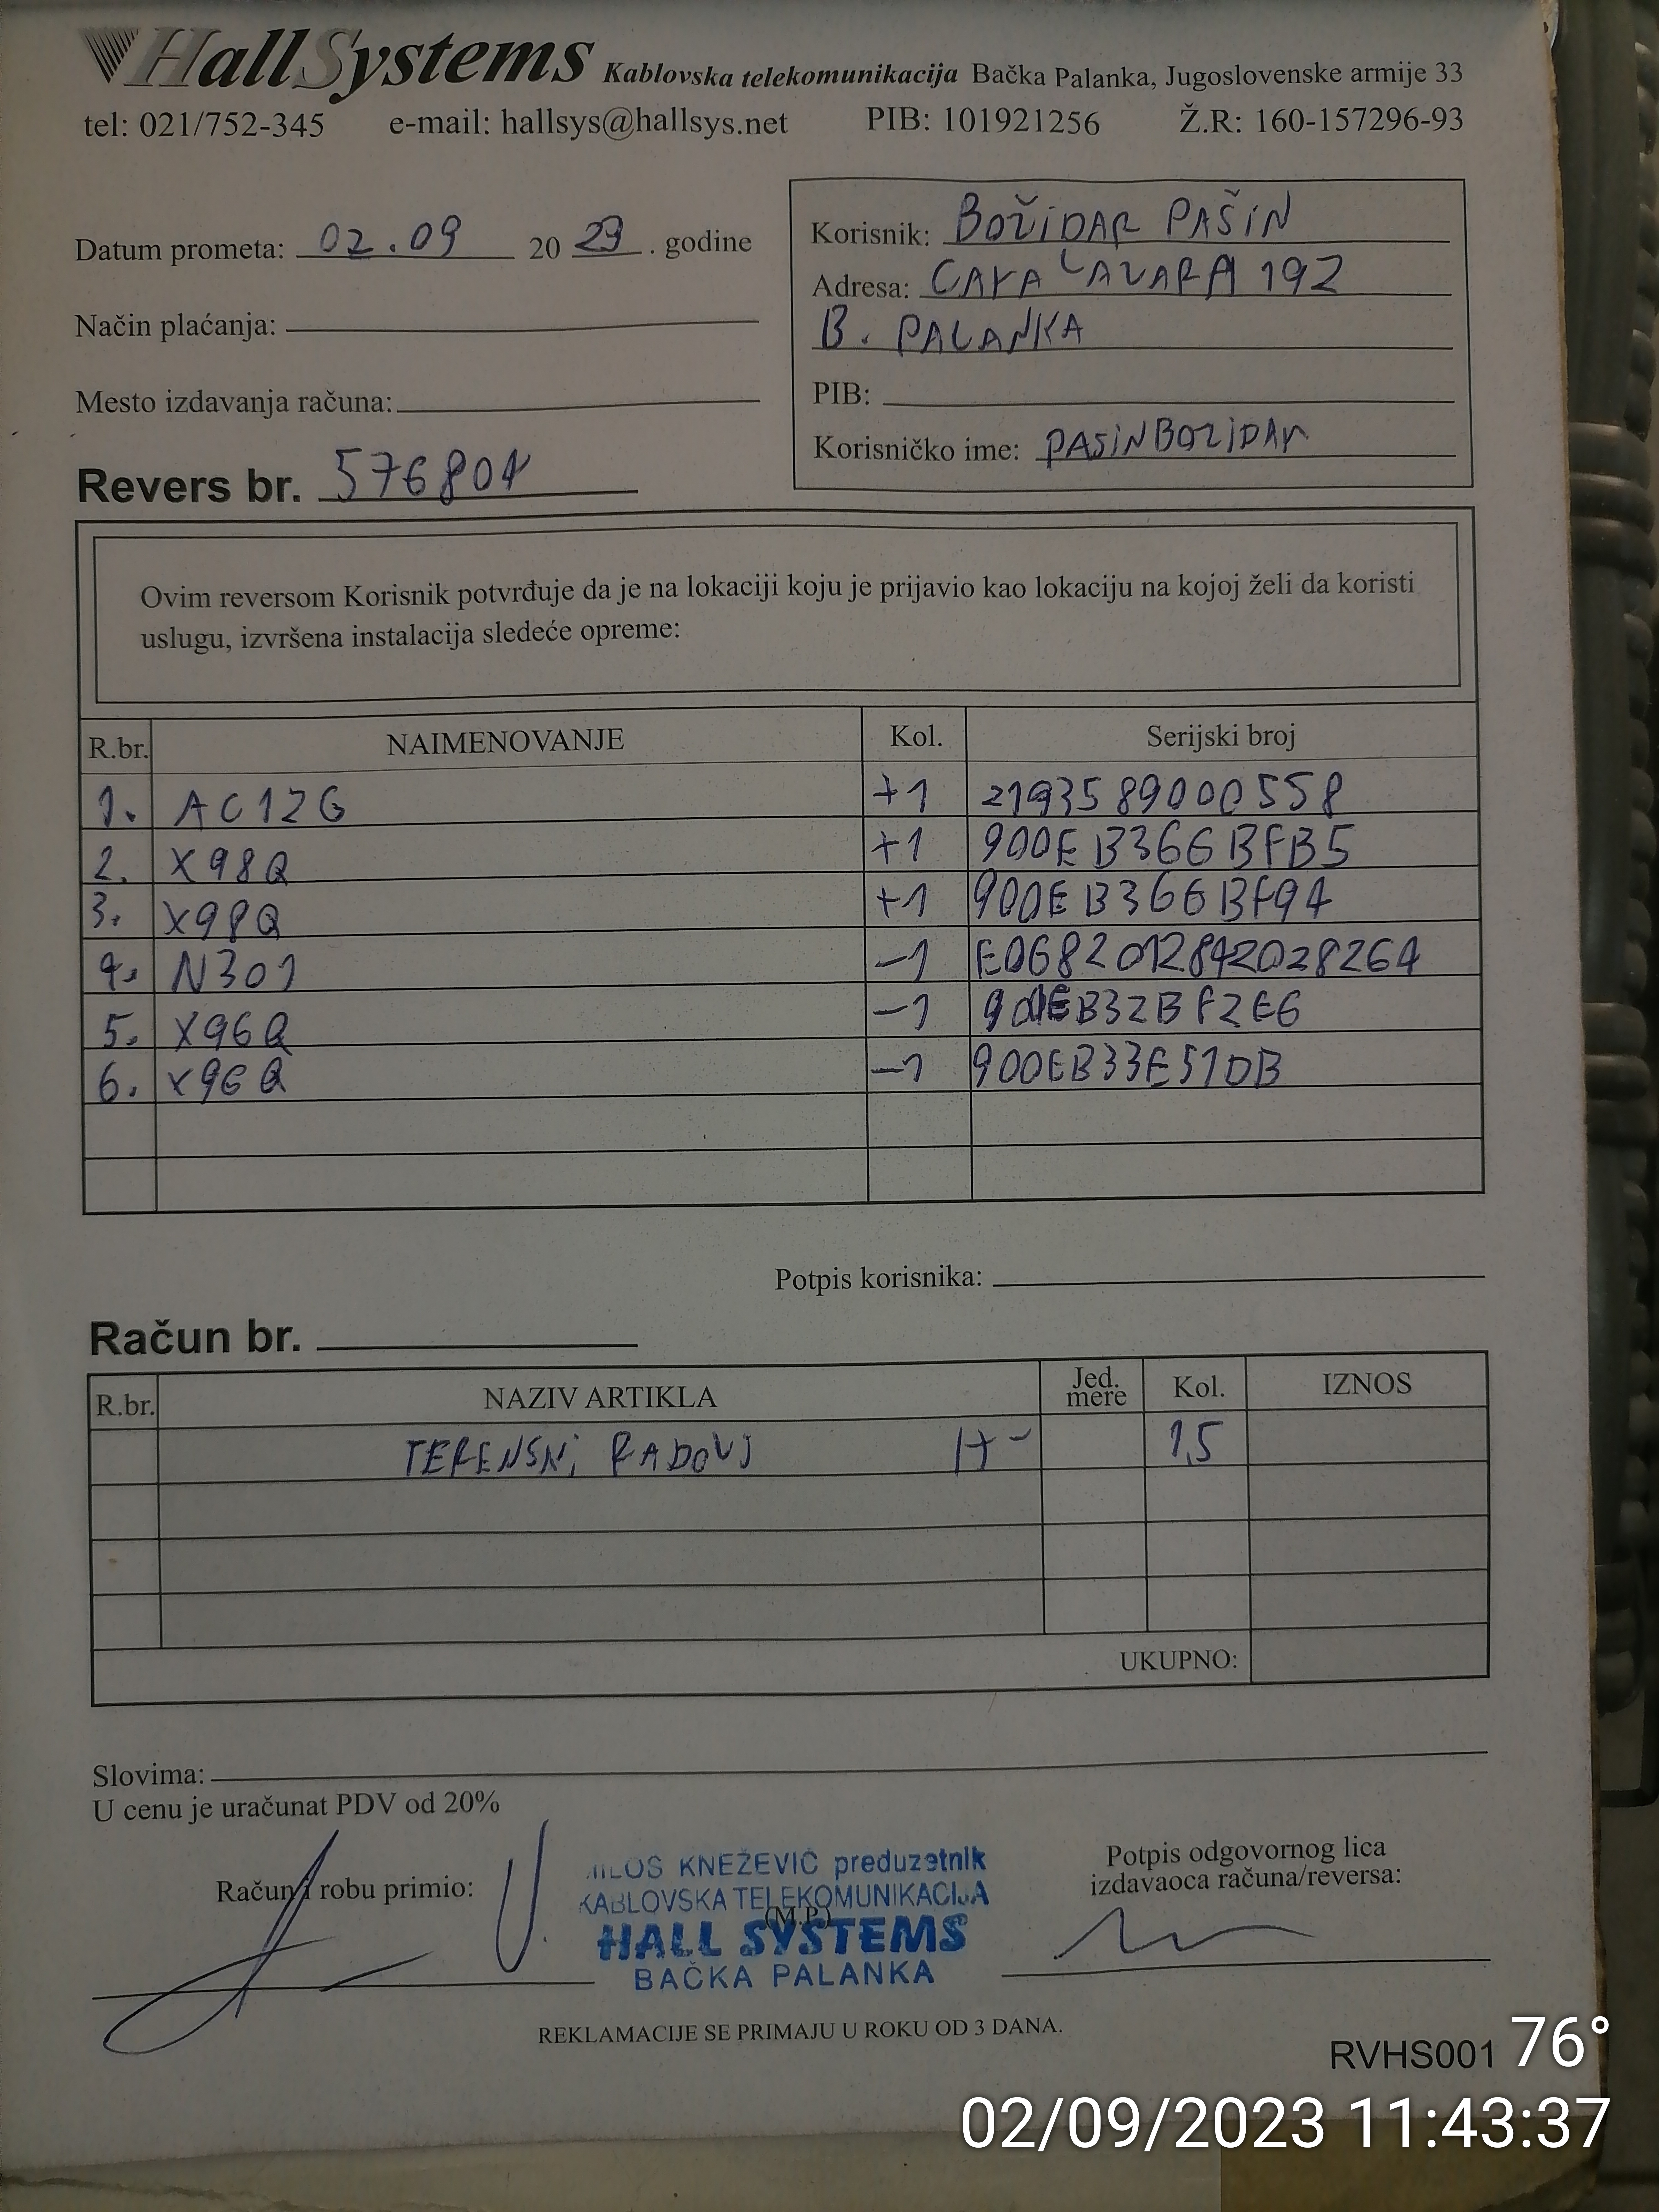 HallSystems Kablovska telekomunikacija Bačka Palanka, Jugoslovenske armije 33
tel: 021/752-345 e-mail: hallsys@hallsys.net PIB: 101921256 Ž.R: 160-157296-93
Datum prometa: 02.09 2023. godine
Način plaćanja:
Mesto izdavanja računa:
Revers br. 576804
Korisnik: BOŽIDAR PAŠIN
Adresa: CARA LAZARA 192
B. PALANKA
PIB:
Korisničko ime: PASINBOZIDAR
Ovim reversom Korisnik potvrđuje da je na lokaciji koju je prijavio kao lokaciju na kojoj želi da koristi
uslugu, izvršena instalacija sledeće opreme:
R.br. NAIMENOVANJE Kol. Serijski broj
1. AC12G +1 2193589000558
2. X98Q +1 900EB366BFB5
3. X98Q +1 900EB366BF94
4. N301 -1 E0682012842028264
5. X96Q -1
6. X96Q -1 900EB33E51DB
Potpis korisnika:
Račun br.
R.br. NAZIV ARTIKLA Jed. mere Kol. IZNOS
TERENSNI RADOVI H- 1,5
UKUPNO:
Slovima:
U cenu je uračunat PDV od 20%
Račun i robu primio:
MILOŠ KNEŽEVIĆ preduzetnik
KABLOVSKA TELEKOMUNIKACIJA
(M.P.)
HALL SYSTEMS
BAČKA PALANKA
Potpis odgovornog lica
izdavaoca računa/reversa:
REKLAMACIJE SE PRIMAJU U ROKU OD 3 DANA.
RVHS001 76°
02/09/2023 11:43:37